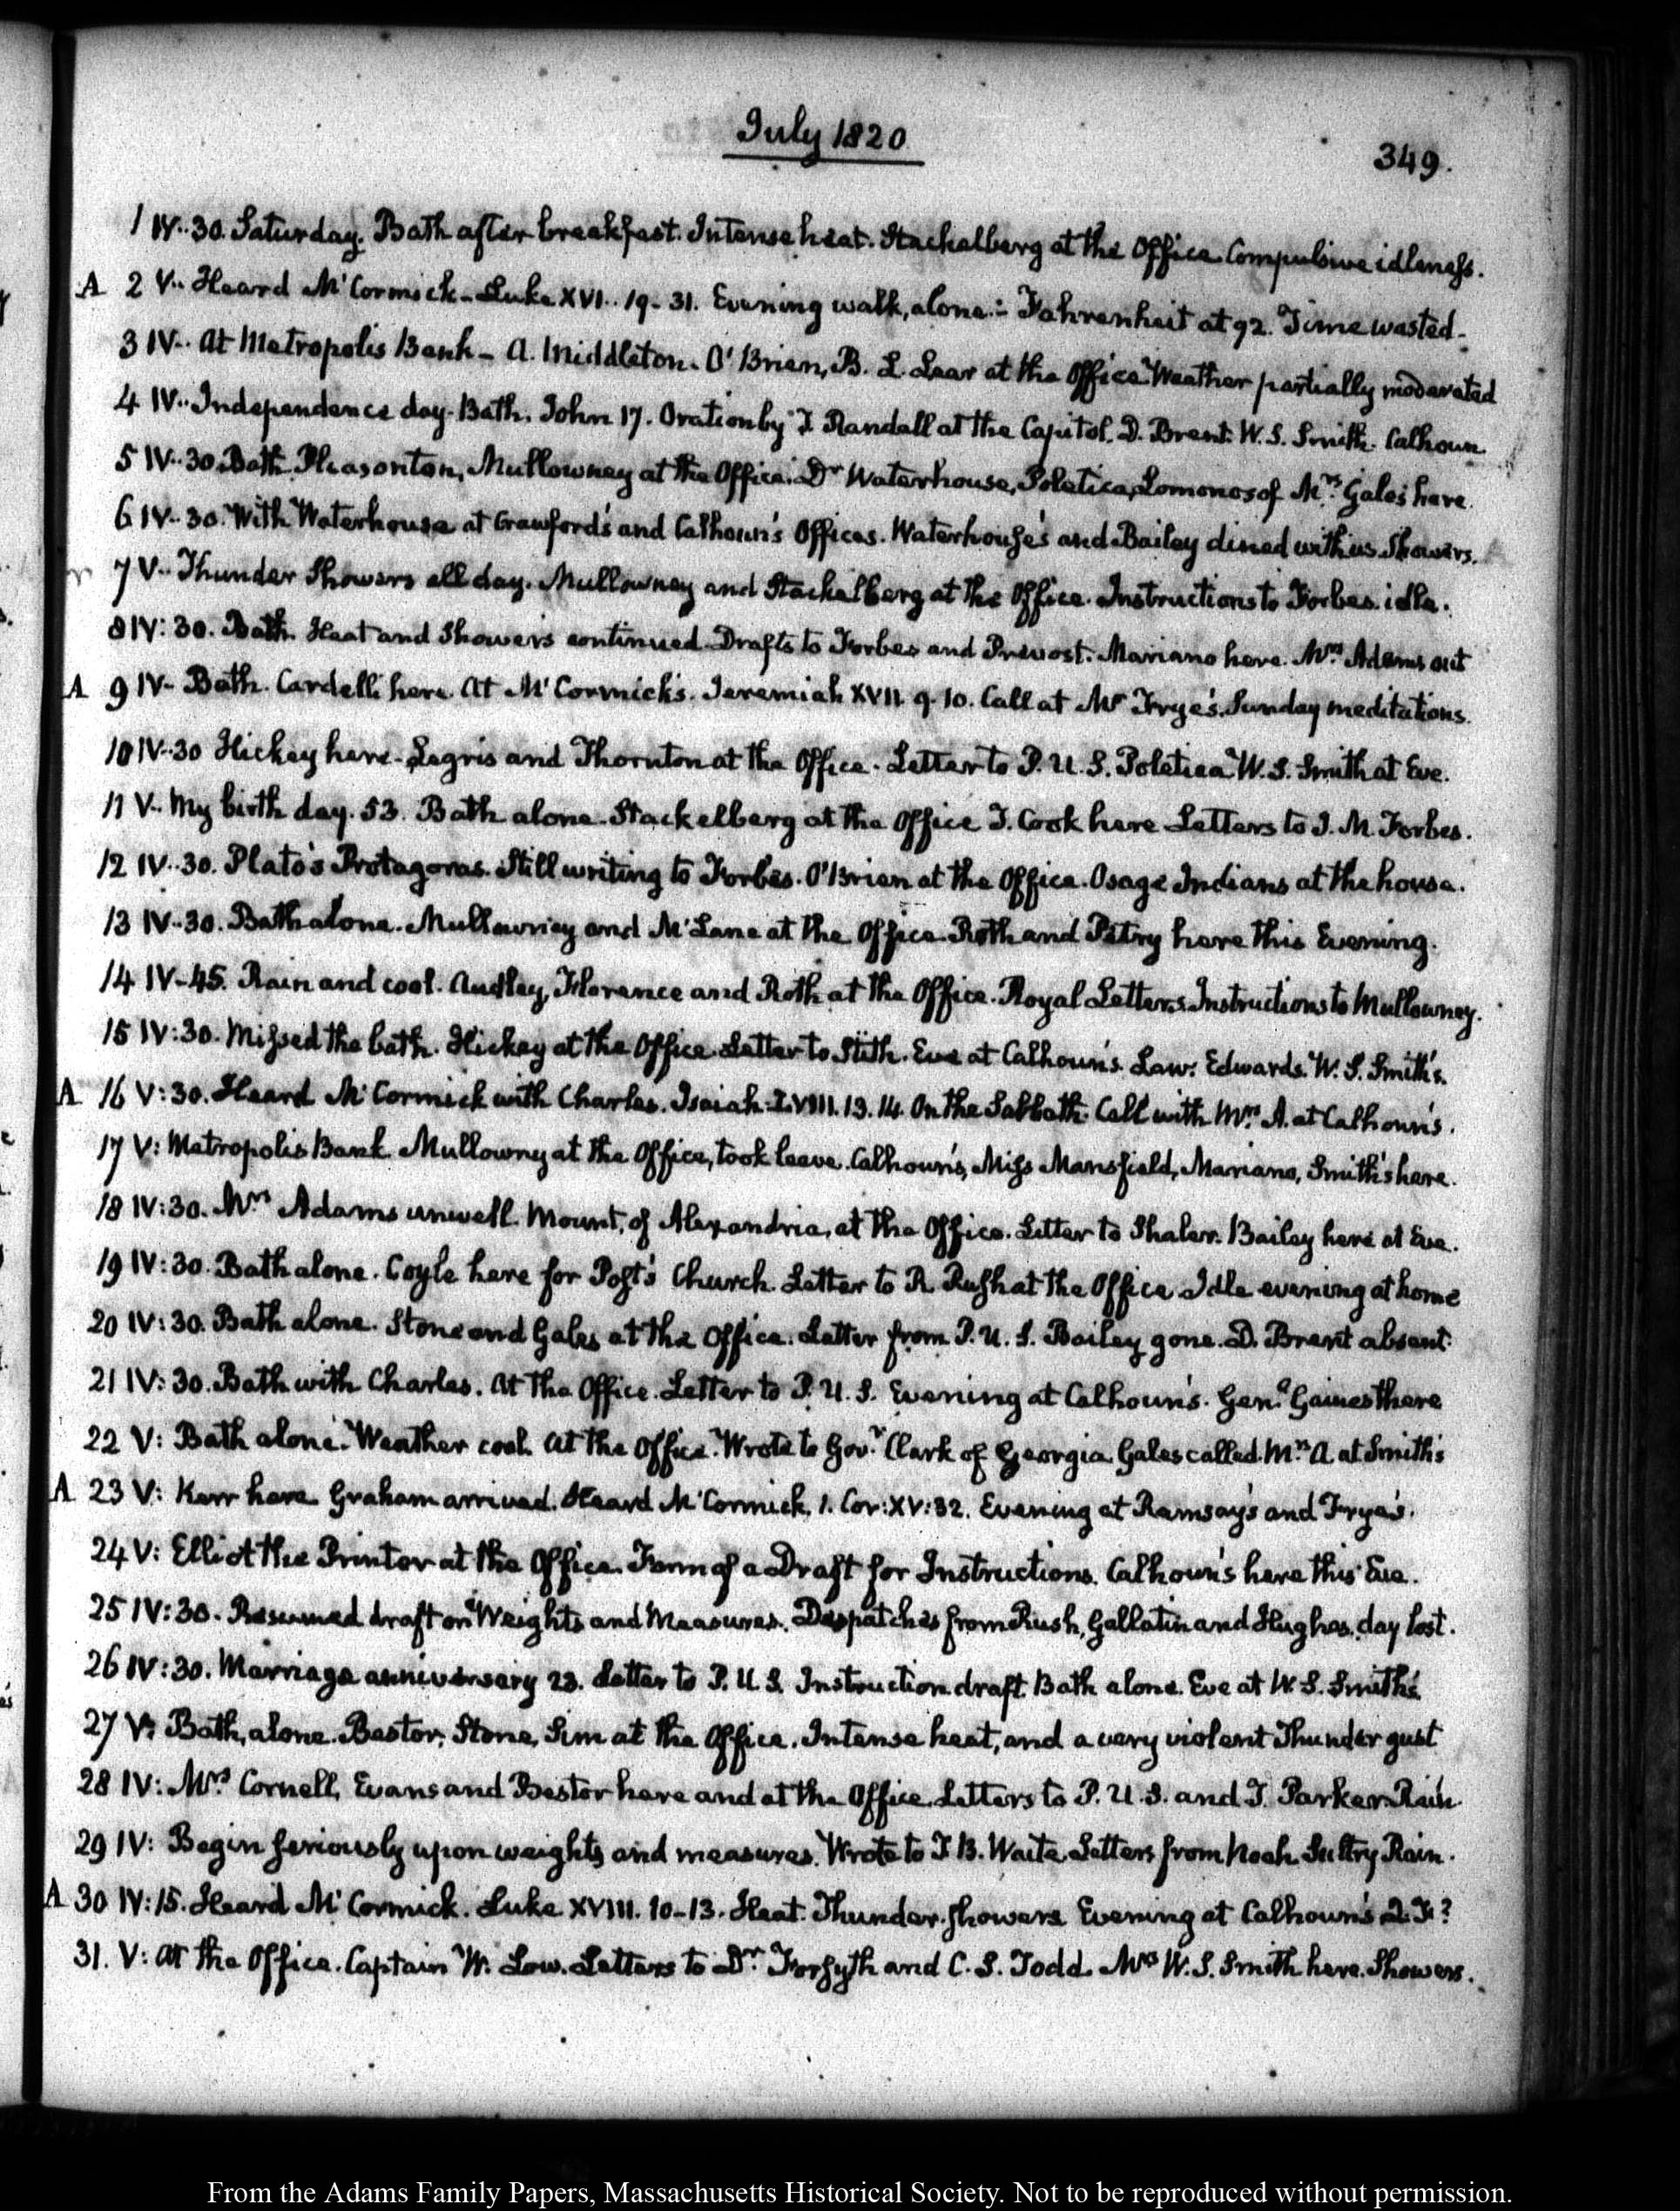 July 1820
349.
1 IV..30. Saturday. Bath after breakfast. Intense heat. Stackelberg at the Office. Compulsive idleness.
A 2 V.. Heard Mc.Cormick - Luke XVI.. 19-31. Evening walk, alone.- Fahrenheit at 92. Time wasted-
3 IV.. At Metropolis Bank - A. Middleton. O'Brien, B. L. Lear at the Office Weather partially moderated
4 IV.. Independence day. Bath. John 17. Oration by J Randall at the Capitol. D. Brent. W. S. Smith. Calhoun
5 IV..30. Bath. Pleasonton, Mullowney at the Office. Dr Waterhouse, Poletica, Lomonosof Mrs. Gales here.
6 IV..30. With Waterhouse at Crawford's and Calhoun's Offices. Waterhouse's and Bailey dined with us. Showers.
7 V.. Thunder Showers all day. Mullowney and Stackelberg at the Office. Instructions to Forbes. idle.
8 IV: 30. Bath. Heat and Showers continued. Drafts to Forbes and Prevost. Mariano here. Mrs. Adams out
A 9 IV- Bath. Cardelli here. At Mc.Cormick's. Jeremiah XVII. 9. 10. Call at Mr Frye's. Sunday meditations.
10 IV..30 Hickey here. Legris and Thornton at the Office. Letter to P. U. S. Poletica W. S. Smith at Eve.
11 V.. My birth day. 53. Bath alone. Stackelberg at the Office J. Cook here Letters to J. M. Forbes.
12 IV..30. Plato's Protagoras. Still writing to Forbes. O'Brien at the Office. Osage Indians at the house.
13 IV..30. Bath alone. Mullowney and Mc.Lane at the Office. Roth and Petry here this Evening.
14 IV-45. Rain and cool. Audley, Florence and Roth at the Office. Royal Letters. Instructions to Mullowney.
15 IV:30. Missed the bath. Hickey at the Office. Letter to Stith. Eve at Calhoun's. Law. Edwards. W. S. Smith's.
A 16 V:30. Heard Mc.Cormick with Charles. Isaiah LVIII. 13. 14. On the Sabbath. Call with Mrs. A. at Calhoun's.
17 V: Metropolis Bank Mullowny at the Office, took leave. Calhoun's, Miss Mansfield, Mariano, Smith's here.
18 IV:30. Mrs Adams unwell. Mount, of Alexandria, at the Office. Letter to Shaler. Bailey here at Eve.
19 IV:30. Bath alone. Coyle here for Post's Church. Letter to R Rush at the Office. Idle evening at home
20 IV:30. Bath alone. Stone and Gales at the Office. Letter from P. U. S. Bailey gone. D. Brent absent.
21 IV:30. Bath with Charles. At the Office. Letter to P. U. S. Evening at Calhoun's. Genl. Gaines there
22 V: Bath alone. Weather cool. At the Office. Wrote to Govr. Clark of Georgia. Gales called. Mrs. A at Smith's
A 23 V: Kerr here. Graham arrived. Heard Mc.Cormick. 1. Cor:XV:32. Evening at Ramsay's and Frye's.
24 V: Elliot the Printer at the Office. Form of a Draft for Instructions. Calhoun's here this Eve.
25 IV:30. Resumed draft on Weights and Measures. Despatches from Rush, Gallatin and Hughes. day lost.
26 IV:30. Marriage anniversary 23. Letter to P. U. S. Instruction draft. Bath alone. Eve at W. S. Smith's
27 V: Bath, alone. Bestor, Stone, Sim at the Office. Intense heat, and a very violent Thunder gust
28 IV: Mrs. Cornell, Evans and Bestor here and at the Office. Letters to P. U. S. and J. Parker. Rain.
29 IV: Begin seriously upon weights and measures. Wrote to J B. Waite. Letters from Noah. Sultry Rain.
A 30 IV:15. Heard Mc.Cormick. Luke XVIII. 10-13. Heat. Thunder showers. Evening at Calhoun's
31. V: At the Office. Captain W. Low. Letters to Dr. Forsyth and C. S. Todd. Mrs W. S. Smith here. Showers.
From the Adams Family Papers, Massachusetts Historical Society. Not to be reproduced without permission.